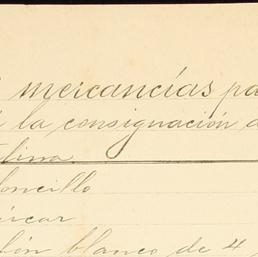 mercancías pa
la consignación d
lina
loncillo
úcar
blanco de 4